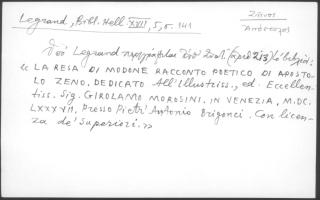 Legrand, Bibl. Hell. XVII, 5, σ. 141
Ζῆνος
Ἀπόστολος
Legrand περιγράφεται
« LA RESA DI MODONE RACCONTO POETICO DI APOSTO-
LO ZENO, DEDICATO All'Illustriss., ed. Eccellen-
tiss. Sig. GIROLAMO MOROSINI. IN VENEZIA, M.DC.
LXXXVII, Presso Pietr' Antonio Brigonci. Con licen-
za de' Superiori. »